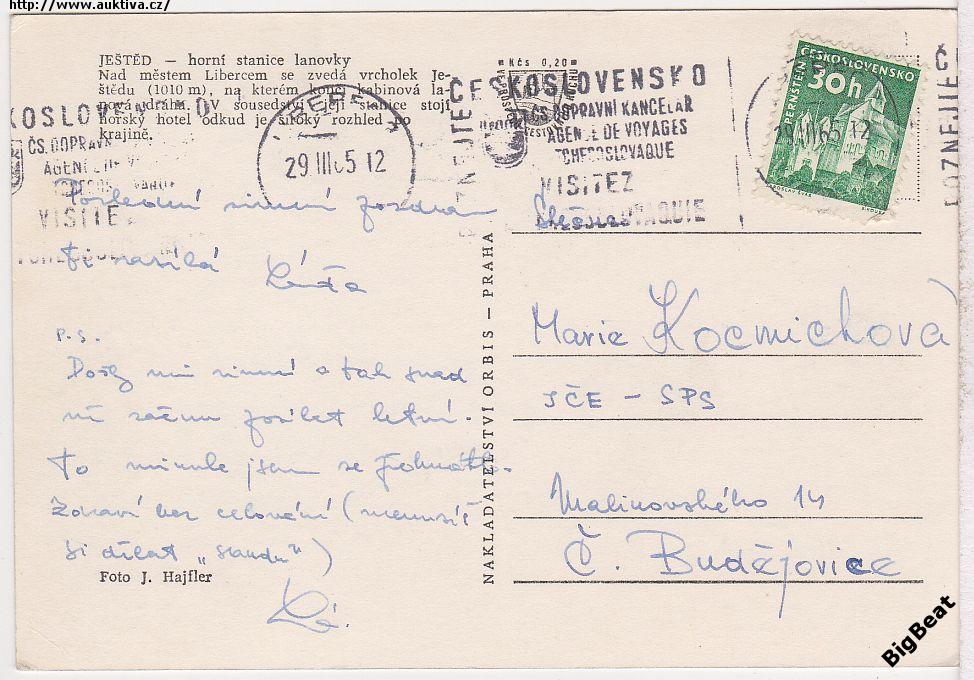 http://www.auktiva.cz/
JEŠTĚD — horní stanice lanovky
Nad městem Libercem se zvedá vrcholek Je-
štědu (1010 m), na kterém končí kabinová la-
nová dráha. V sousedství její stanice stojí
horský hotel odkud je široký rozhled po
krajině.
Kčs 0,20
KOSLOVENSKO
ČS. DOPRAVNÍ
AGENCE DE V
VISITEZ
29 III 65 12
ČESKOSLOVENSKO
ČS DOPRAVNÍ KANCELÁŘ
AGENCE DE VOYAGES
TCHECOSLOVAQUE
VISITEZ
ČESKOSLOVENSKO
30h
PERNŠTEJN
29 III 65 12
POZNEJTE
Č
Poslední zimní pozdrav
Ti zasílá Láďa
P.S.
Došly mi zimní a tak snad
už začnu posílat letní.
To minule jsem se
Zdraví bez celování (nemusíš
si dělat „srandu")
Lá.
Foto J. Hajfler
NAKLADATELSTVÍ ORBIS — PRAHA
Slečna
Marie Kocmichová
JČE - SPS
Malinovského 14
Č. Budějovice
BigBeat